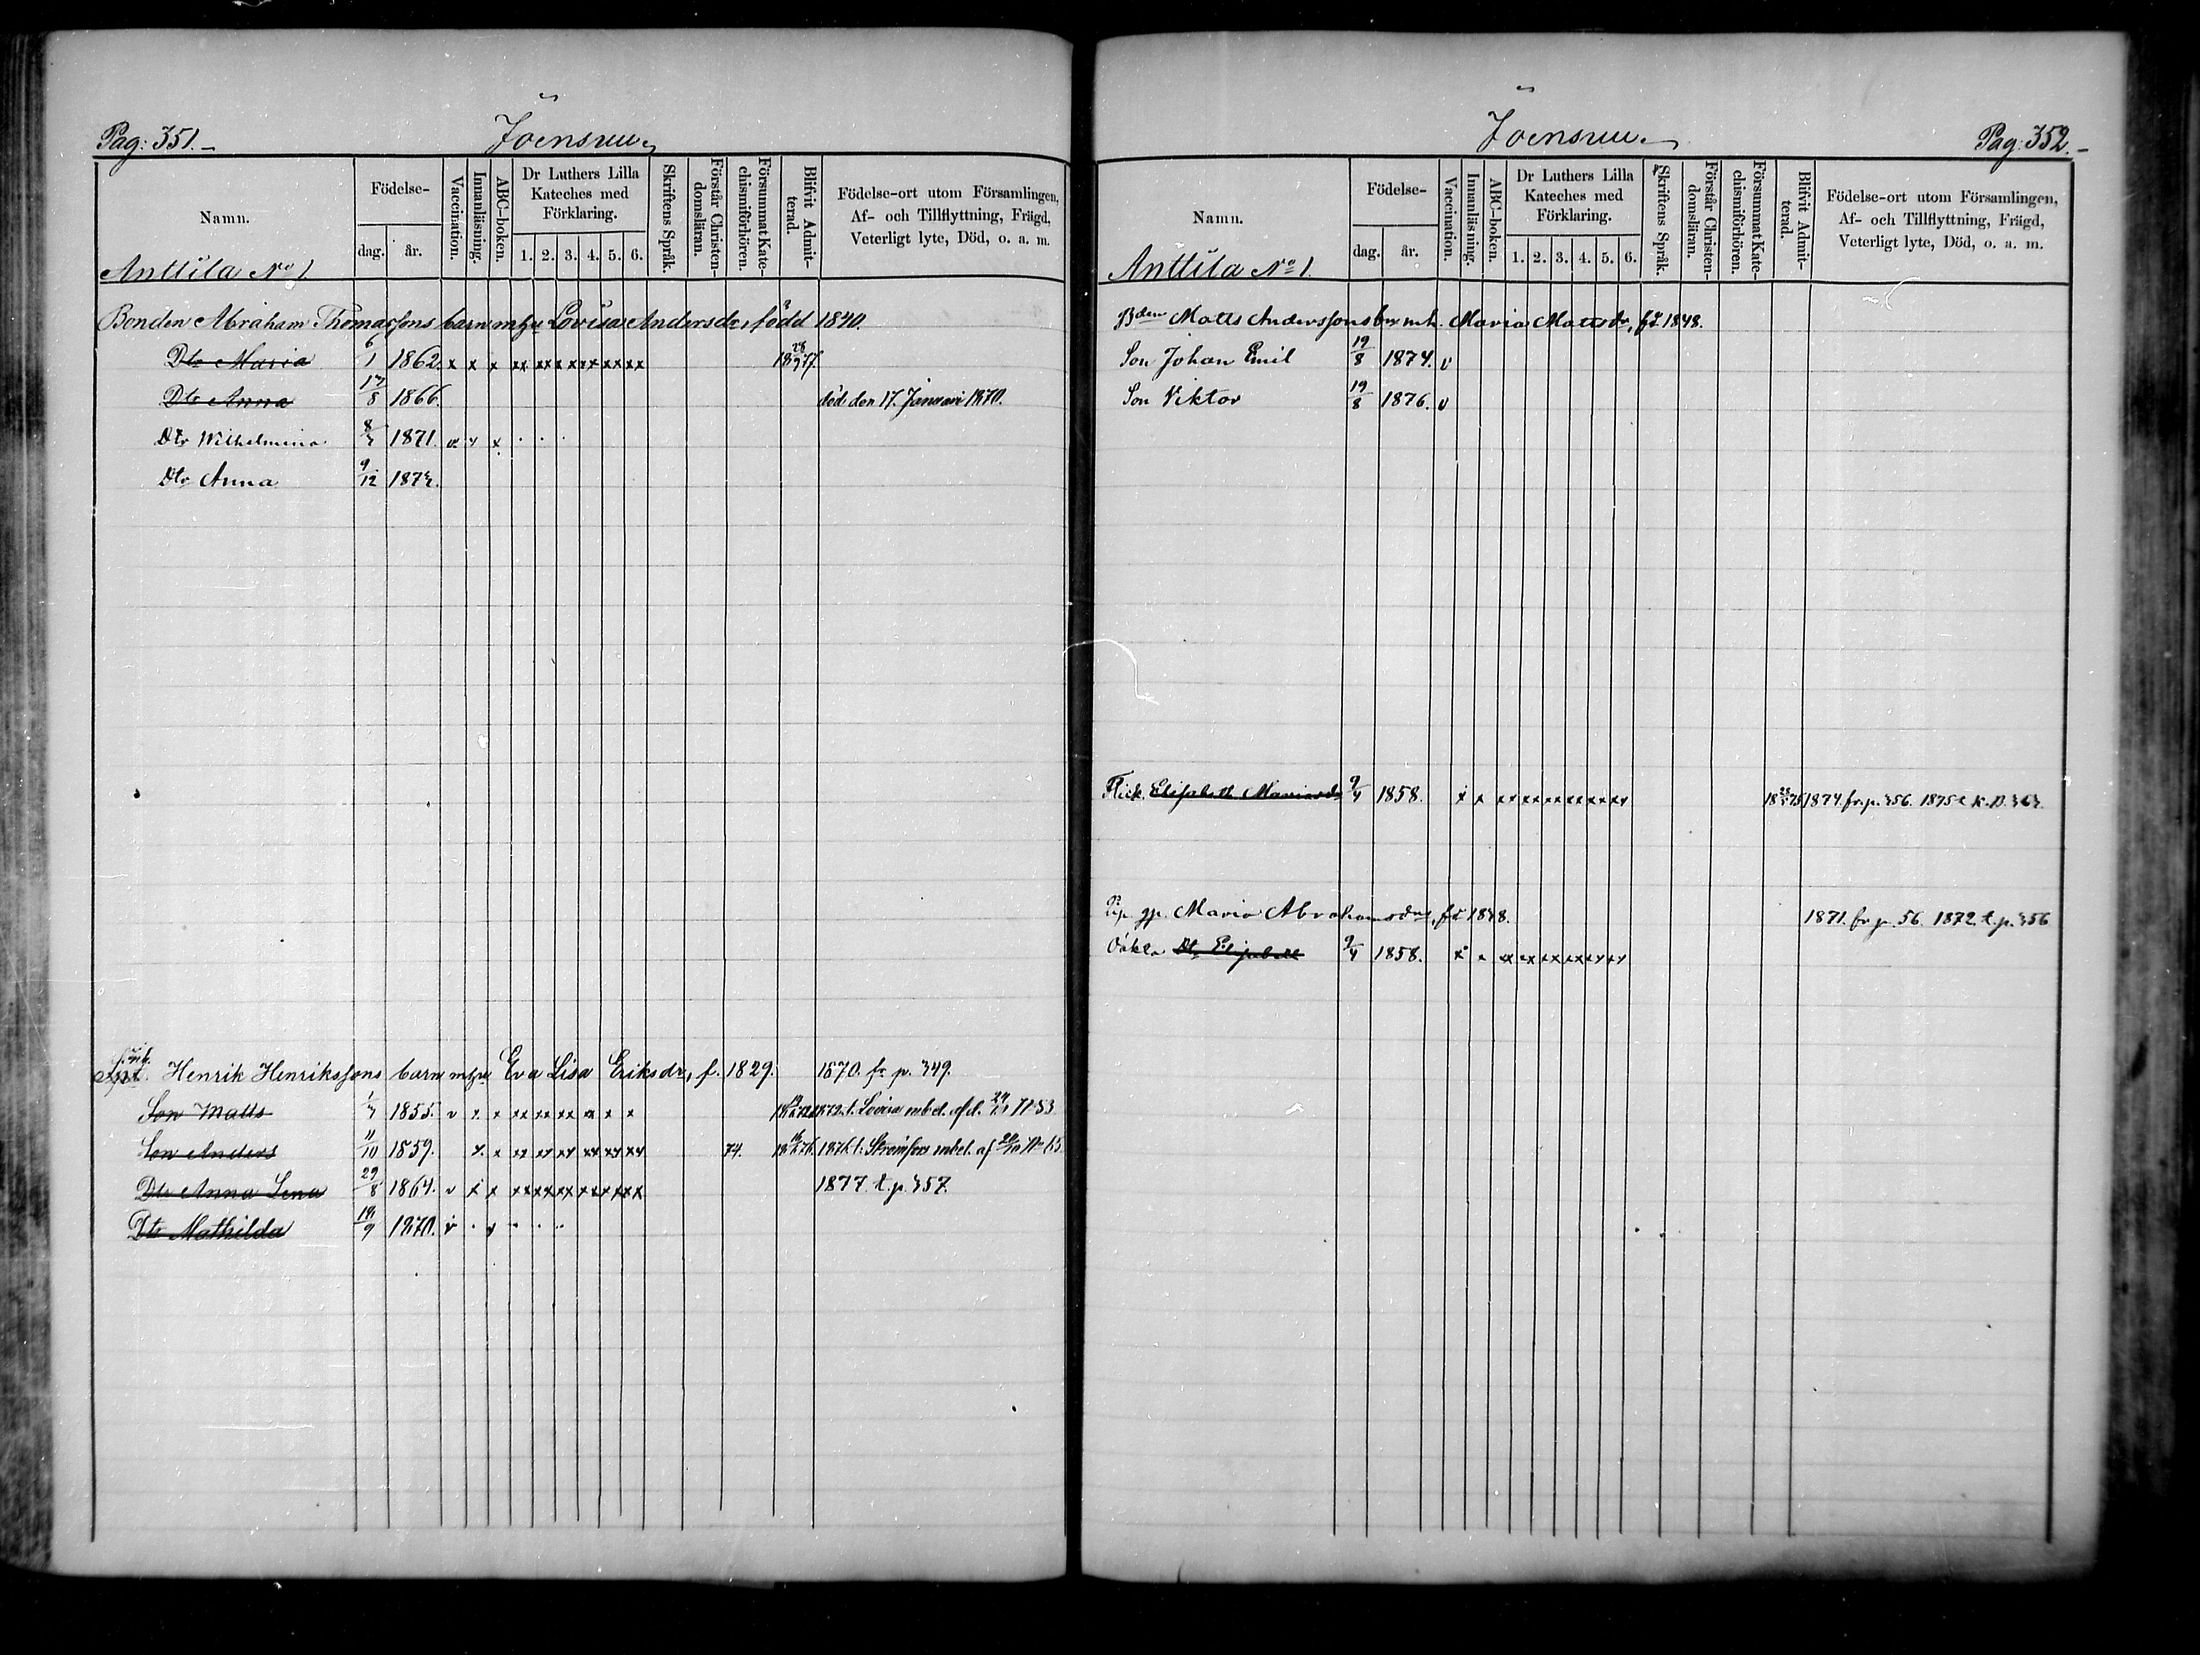 Pag: 351.
Joensuu.
Namn.
Födelse-
dag.
år.
Vaccination.
Innanläsning.
ABC-boken.
Dr Luthers Lilla Kateches med Förklaring.
1. 2. 3. 4. 5. 6.
Skriftens Språk.
Förstår Christendomsläran.
Försummat Katechismiförhören.
Blifvit Admitterad.
Födelse-ort utom Församlingen,
Af- och Tillflyttning, Frägd,
Veterligt lyte, Död, o. a. m.
Anttila No 1
Bonden Abraham Thomassons barn m. hu Lovisa Andersdr, född 1840.
Dtr Maria 6/1 1862. x x x xx xx xx xx xx xx 18 28/9 77.
Dtr Anna 17/8 1866. död den 17. Januari 1870.
Dtr Wilhelmina 1871. v x x
Dtr Anna 9/12
Henrik Henrikssons barn m hu Eva Lisa Eriksdr, f. 1829. 1870. fr p. 349.
Son Matts 1855. v x x xx xx xx x x x 1872. t. Lovisa mbet. af d.
Son Anders 11/10 1859. x x xx xx xx xx xx xx 74. 1876 t. Strömfors mbet. af
Dtr Anna Lena 29/8 1864. v x x xx xx xx xx xx xx 1877. t. p. 357.
Dtr Mathilda 1870. v
Pag: 352.
Joensuu.
Namn.
Födelse-
dag.
år.
Vaccination.
Innanläsning.
ABC-boken.
Dr Luthers Lilla Kateches med Förklaring.
1. 2. 3. 4. 5. 6.
Skriftens Språk.
Förstår Christendomsläran.
Försummat Katechismiförhören.
Blifvit Admitterad.
Födelse-ort utom Församlingen,
Af- och Tillflyttning, Frägd,
Veterligt lyte, Död, o. a. m.
Anttila No 1
Bden Matts Anderssons brn m h. Maria Mattsdr, fd. 1848.
Son Johan Emil 19/8 1874. v
Son Viktor 19/8 1876. v
Flick. Elisabeth Mariasdr 9/4 1858. x x xx xx xx xx xx xx 1874. fr. p. 356. 1875 t. K. B. 363.
Maria Abrahamsdrs, fd 1871. fr p. 56. 1872 t. p. 356
Oäkta Dtr Elisabeth 9/4 1858. x x xx xx xx xx xx xx